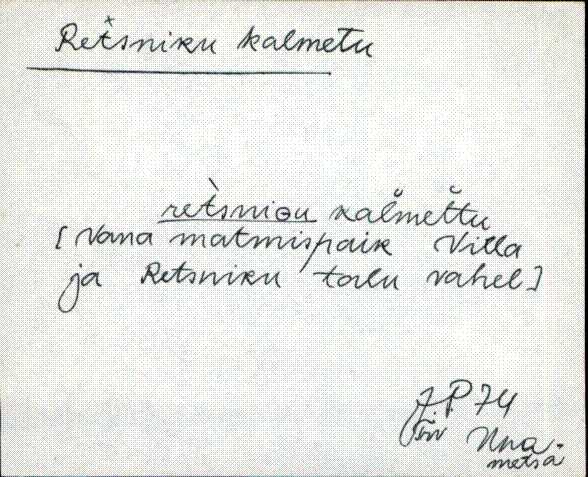 Retsniku kalmetu
rètsniɢu kalmettu
[Vana matmispaik Villa
ja Retsniku talu vahel]
J.P. 74
metsa